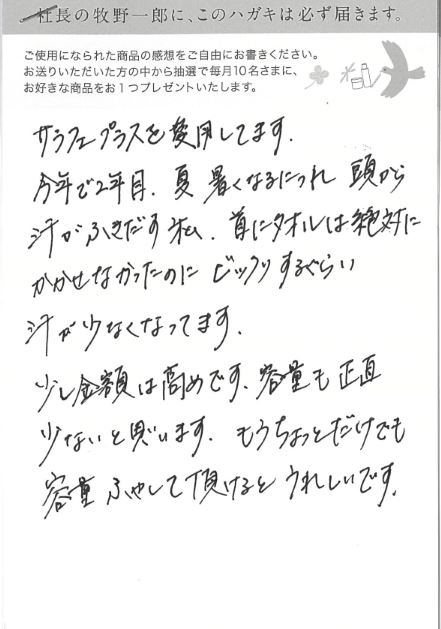 社長の牧野一郎に、このハガキは必ず届きます。
ご使用になられた商品の感想をご自由にお書きください。
お送りいただいた方の中から抽選で毎月10名さまに、
お好きな商品をお１つプレゼントいたします。
サラフェプラスを愛用してます.
今年で2年目. 夏 暑くなるにつれ 頭から
汗がふきだす私. 首にタオルは絶対に
かかせなかったのに ビックリするぐらい
汗が少なくなってます.
少し金額は高めです. 容量も正直
少ないと思います. もうちょっとだけでも
容量 ふやして頂けると うれしいです.